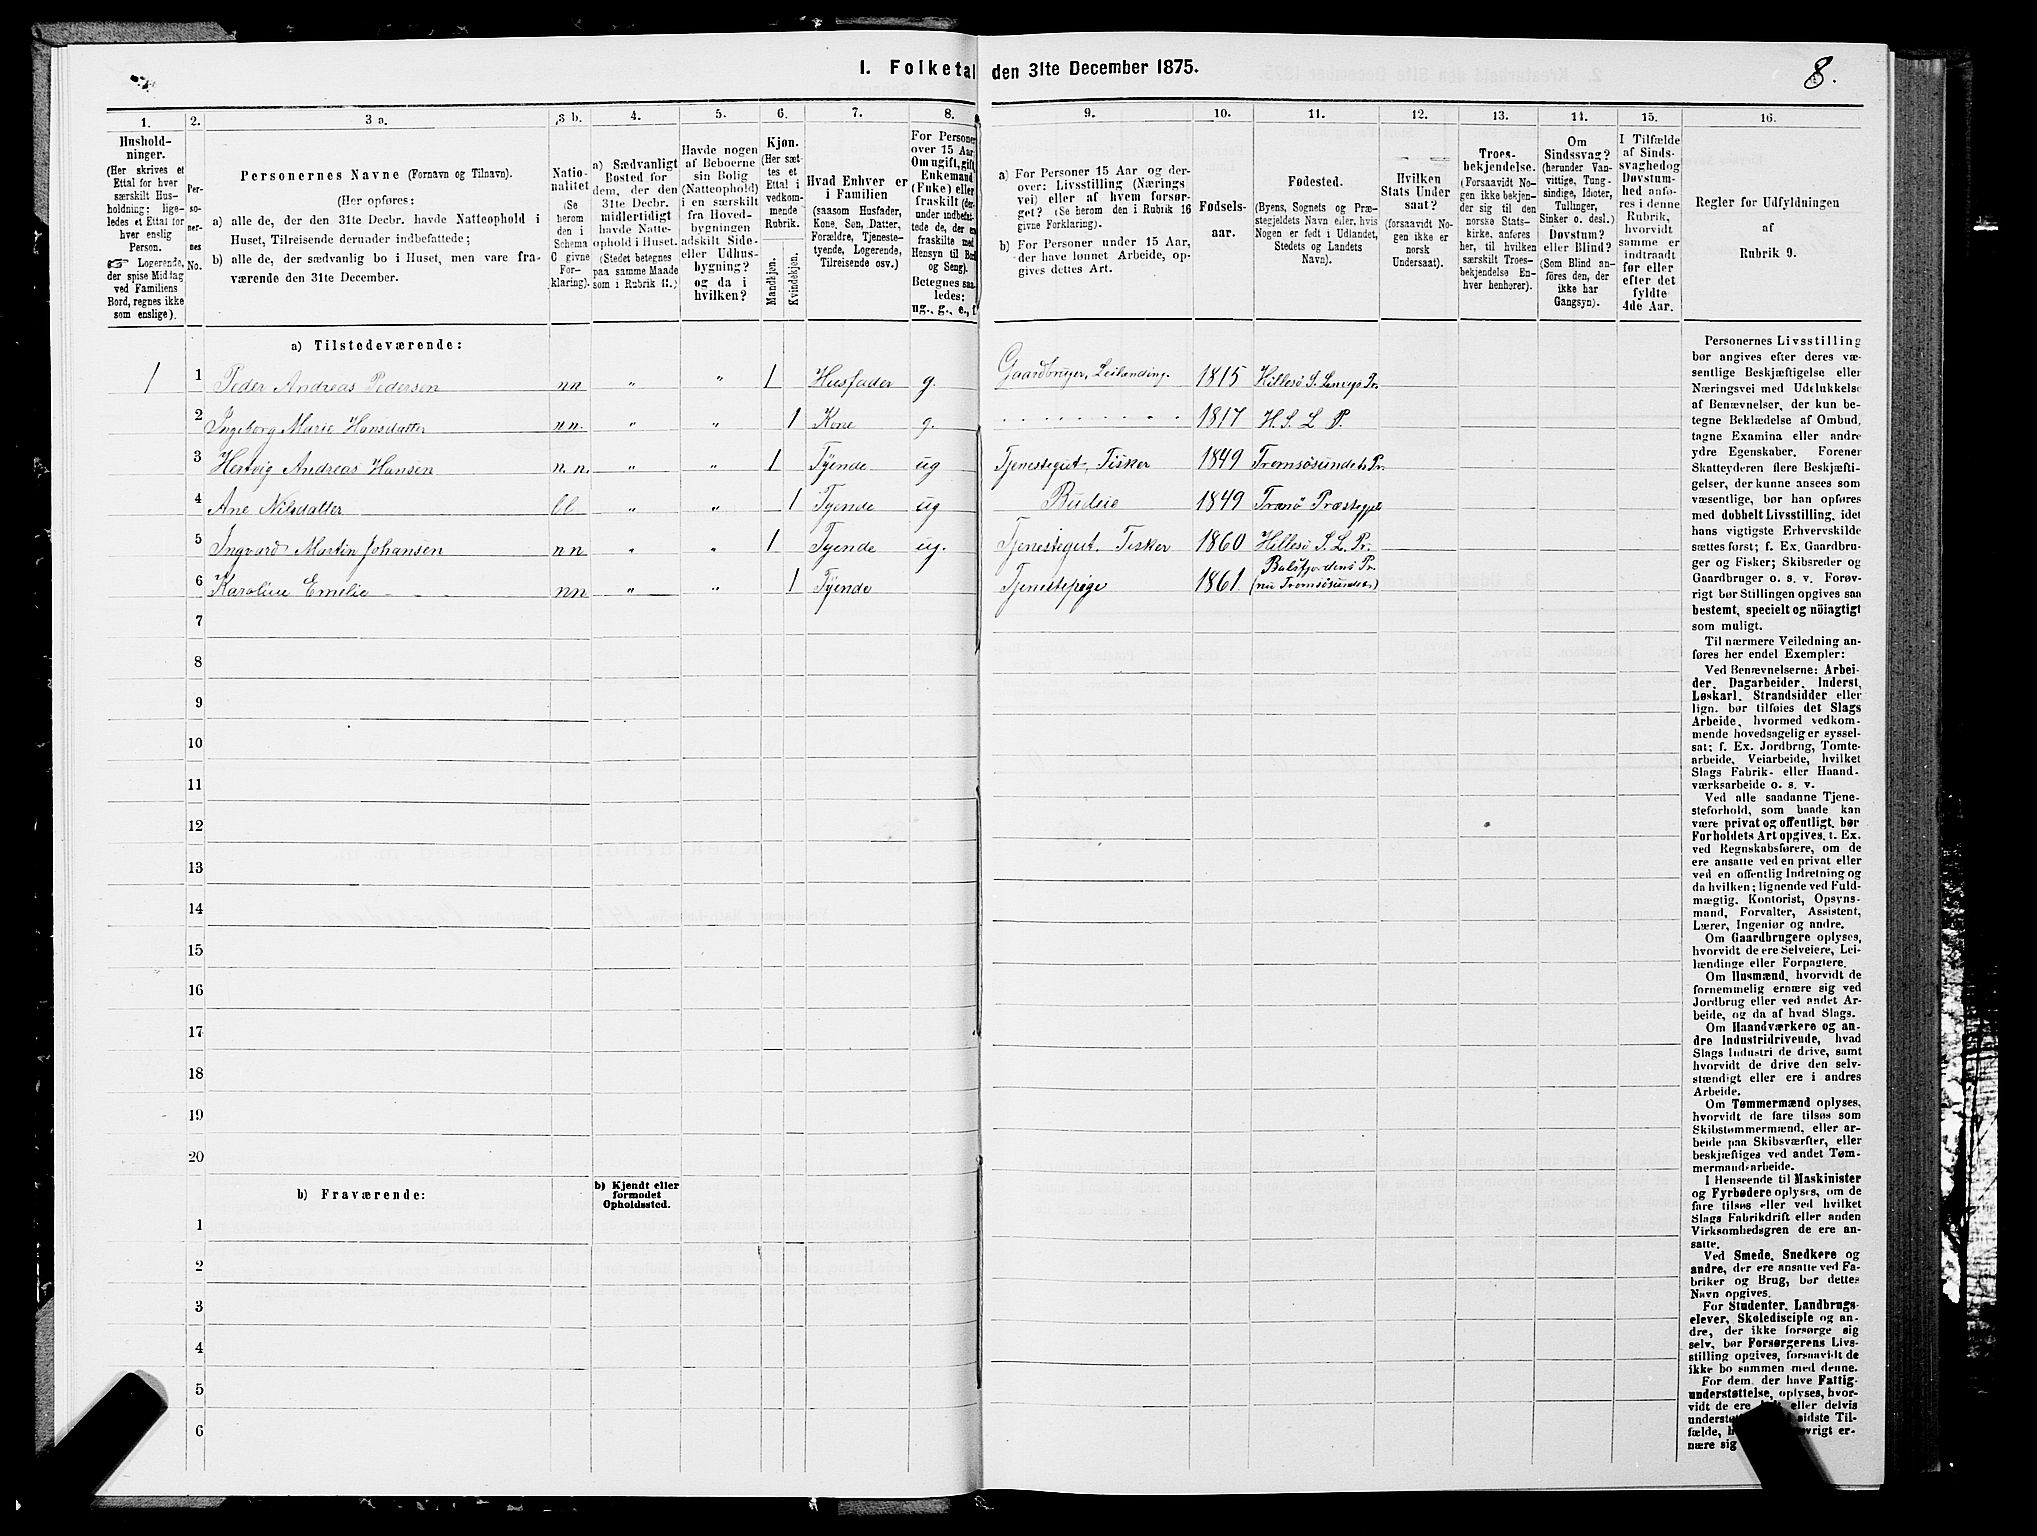 I. Folketal den 31te December 1875.
8.
1.
Hushold-
ninger.
(Her skrives et
Ettal for hver
særskilt Hus-
holdning; lige-
ledes et Ettal for
hver enslig
Person.
Logerende,
der spise Middag
ved Familiens
Bord, regnes ikke
som enslige).
2.
Per-
so-
ner-
nes
No.
3 a.
Personernes Navne (Fornavn og Tilnavn).
(Her opføres:
a) alle de, der den 31te Decbr. havde Natteophold i
Huset, Tilreisende derunder indbefattede;
b) alle de, der sædvanlig bo i Huset, men vare fra-
værende den 31te December.
3 b.
Natio-
nalitet
(Se
herom
den i
Schema
C givne
For-
klaring).
4.
a) Sædvanligt
Bosted for
dem, der den
31te Decbr.
midlertidigt
havde Natte-
ophold i Huset.
(Stedet betegnes
paa samme Maade
som i Rubrik 11.)
5.
Havde nogen
af Beboerne
sin Bolig
(Natteophold)
i en særskilt
fra Hoved-
bygningen
adskilt Side-
eller Udhus-
bygning?
og da i
hvilken?
6.
Kjøn.
(Her sæt-
tes et
Ettal i
vedkom-
mende
Rubrik.
Mandkjøn.
Kvindekjøn.
7.
Hvad Enhver er
i Familien
(saasom Husfader,
Kone, Søn, Datter,
Forældre, Tjeneste-
tyende, Logerende,
Tilreisende osv.)
8.
For Personer
over 15 Aar:
Om ugift, gift,
Enkemand
(Enke) eller
fraskilt (der-
under indbefat-
tede de, der ere
fraskilte med
Hensyn til Bord
og Seng).
Betegnes saa-
ledes:
ug., g., e., f.
9.
a) For Personer 15 Aar og der-
over: Livsstilling (Nærings
vei) eller af hvem forsør-
get? (Se herom den i Rubrik 16
givne Forklaring).
b) For Personer under 15 Aar,
der have lønnet Arbeide, op-
gives dettes Art.
10.
Fødsels-
aar.
11.
Fødested.
(Byens, Sognets og Præ-
stegjeldets Navn eller, hvis
Nogen er født i Udlandet,
Stedets og Landets
Navn).
12.
Hvilken
Stats Under
saat?
(forsaavidt No-
gen ikke er
norsk
Undersaat).
13.
Troes-
bekjendelse.
(Forsaavidt No-
gen ikke bekjen-
der sig til den
norske Stats-
kirke, anføres
her, til hvilken
særskilt Troes-
bekjendelse En-
hver henhører).
14.
Om
Sindssvag?
(herunder Van-
vittige, Tung-
sindige, Idioter,
Tullinger,
Sinker o. desl.)
Døvstum?
eller Blind?
(Som Blind an-
føres den, der
ikke har
Gangsyn).
15.
I Tilfælde
af Sinds-
svaghed og
Døvstum-
hed anfø-
res i denne
Rubrik,
hvorvidt
samme er
indtraadt
før eller
efter det
fyldte
4de Aar.
16.
Regler for Udfyldningen
af
Rubrik 9.
a) Tilstedeværende:
1 1 Peder Andreas Pedersen nn " " 1 Husfader g. Gaardbruger, Leilænding. 1815 Hillesö S. Lenvigs Pr.
2 Ingeborg Marie Hansdatter nn. " " 1 Kone g. 1817 H. S. L P.
3 Hertvig Andreas Hansen n. n. " " 1 Tyende ug Tjenestegut, Fisker 1849 Tromsøsundets Pr.
4 Ane Nilsdatter " " 1 Tyende ug Budeie 1849 Tranö
5 Ingvard Martin Johansen nn " " 1 Tyende ug. Tjenestegut. Fisker 1860 Hillesö S. L. Pr.
6 Karoline Emelie nn " " 1 Tyende Tjenestepige 1861 Balsfjordens Pr.
(nu Tromsøsundets)
7
8
9
10
11
12
13
14
15
16
17
18
19
20
b) Fraværende:
b) Kjendt eller
formodet
Opholdssted.
1
2
3
4
5
6
Personernes Livsstilling
bør angives efter deres væ-
sentlige Beskjæftigelse eller
Næringsvei med Udelukkelse
af Benævnelser, der kun be-
tegne Beklædelse af Ombud,
tagne Examina eller andre
ydre Egenskaber. Forener
Skatteyderen flere Beskjæfti-
gelser, der kunne ansees som
væsentlige, bør han opføres
med dobbelt Livsstilling, idet
hans vigtigste Erhvervskilde
sættes først; f. Ex. Gaardbru-
ger og Fisker; Skibsreder og
Gaardbruger o. s. v. Forøv-
rigt bør Stillingen opgives saa
bestemt, specielt og nöiagtigt
som muligt.
Til nærmere Veiledning an-
føres her endel Exempler:
Ved Benævnelserne: Arbei-
der, Dagarbeider, Inderst,
Løskarl, Strandsidder eller
lign. bør tilføies det Slags
Arbeide, hvormed vedkom-
mende hovedsagelig er syssel-
sat; f. Ex. Jordbrug, Tomte-
arbeide, Veiarbeide, hvilket
Slags Fabrik- eller Haand-
værksarbeide o. s. v.
Ved alle saadanne Tjene-
steforhold, som baade kan
være privat og offentligt, bør
Forholdets Art opgives, t. Ex.
ved Regnskabsførere, om de
ere ansatte ved en privat eller
ved en offentlig Indretning og
da hvilken; lignende ved Fuld-
mægtig, Kontorist, Opsyns-
mand, Forvalter, Assistent,
Lærer, Ingeniør og andre.
Om Gaardbrugere oplyses,
hvorvidt de ere Selveiere, Lei-
lændinge eller Forpagtere.
Om Husmænd, hvorvidt de
fornemmelig ernære sig ved
Jordbrug eller ved andet Ar-
beide, og da af hvad Slags.
Om Haandværkere og an-
dre Industridrivende, hvad
Slags Industri de drive, samt
hvorvidt de drive den selv-
stændigt eller ere i andres
Arbeide.
Om Tømmermænd oplyses,
hvorvidt de fare tilsøs som
Skibstømmermænd, eller ar-
beide paa Skibsværfter, eller
beskjæftiges ved andet Tøm-
mermandsarbeide.
I Henseende til Maskinister
og Fyrbødere oplyses, om de
fare tilsøs eller ved hvilket
Slags Fabrikdrift eller anden
Virksomhedsgren de ere an-
satte.
Ved Smede, Snedkere og
andre, der ere ansatte ved Fa-
briker og Brug, bør dettes
Navn opgives.
For Studenter, Landbrugs-
elever, Skoledisciple og an-
dre, der ikke forsørge sig
selv, bør Forsørgerens Livs-
stilling opgives, forsaavidt de
ikke bo sammen med denne.
For dem, der have Fattig-
understøttelse, oplyses, hvor-
vidt de ere eller delvis
sidste Til-
fælde, øvrigt er-
nære sig